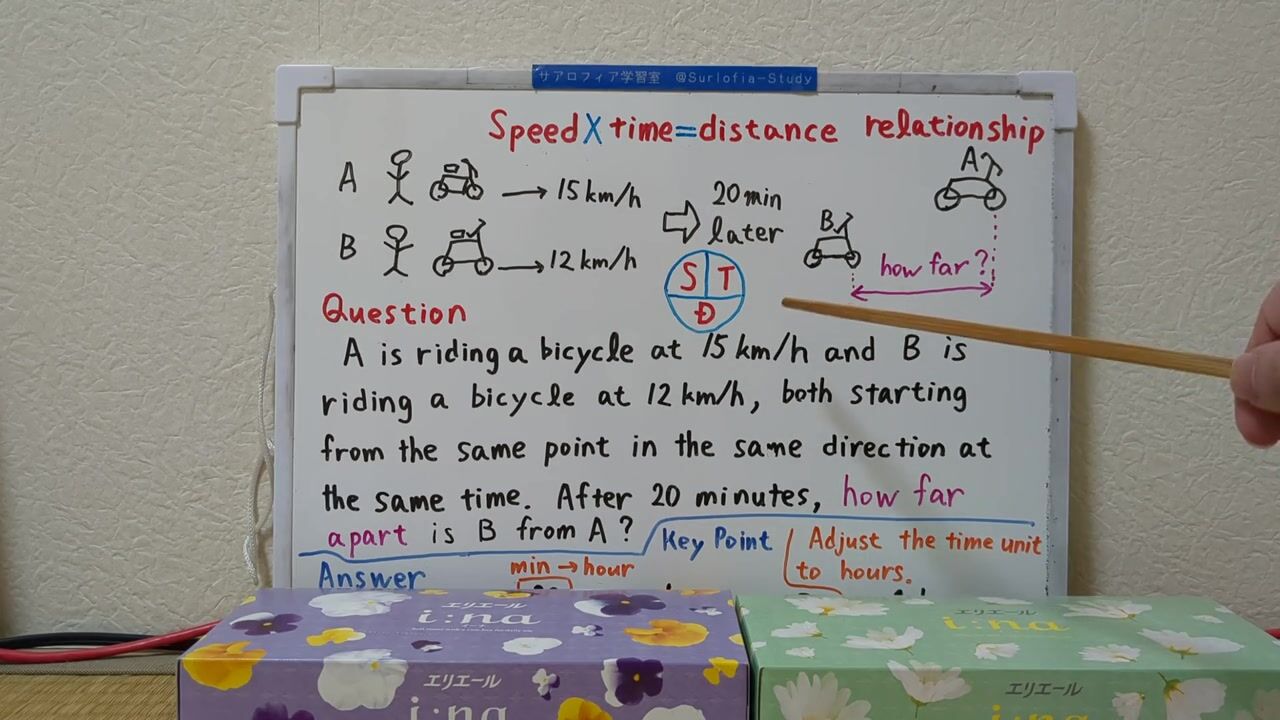 サアロフィア学習室 @Surlofia-Study
Speed X time = distance relationship
A → 15 km/h
B → 12 km/h
20 min
later
S T
D
B
A
how far ?
Question
A is riding a bicycle at 15 km/h and B is
riding a bicycle at 12 km/h, both starting
from the same point in the same direction at
the same time. After 20 minutes, how far
apart is B from A ?
Key Point
Adjust the time unit
to hours.
Answer
min → hour
エリエール
i:na
エリエール
i:na
エリエール
i:na
エリエール
i:na